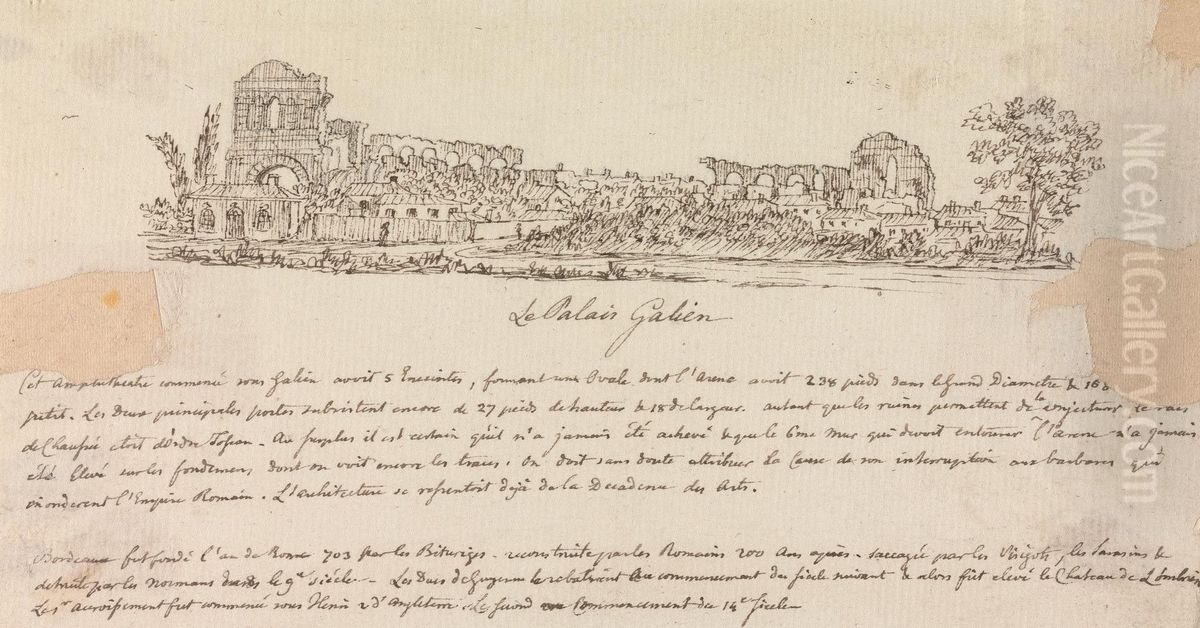 Le Palais Galien
Cet Amphitheatre commencé sous Galien avoit 5 Enceintes, formant une Ovale dont l'Arene avoit 238 pieds dans le Grand Diametre & 168
petit. Les deux principales portes subsistent encore de 27 pieds de hauteur & 18 de largeur. autant que les ruines permettent de la conjecturer, le rais
de Chaussé etoit d'ordre Toscan. Au surplus il est certain qu'il n'a jamais été achevé & que le 6me mur qui devoit entourer l'arene n'a jamais
été Elevé sur les fondemens dont on voit encore les traces. On doit sans doute attribuer la Cause de son interruption aux barbares qui
inonderent l'Empire Romain. L'architecture se resentoit déja de la Decadence des Arts.
Bordeaux fut fondé l'an de Rome 703 par les Bituriges - reconstruite par les Romains 200 Ans après - saccagée par les Visigots, les Sarasins &
detruite par les Normans dans le 9e siécle - Les Ducs de Guyenne la rebatirent au commencement du siecle suivant & alors fut elevé le Chateau de L'ombrière
Le 1er Acroissement fut commencé sous Henri 2 d'Angleterre. Le second au Commencement du 14e Siecle
NiceArtGallery.com